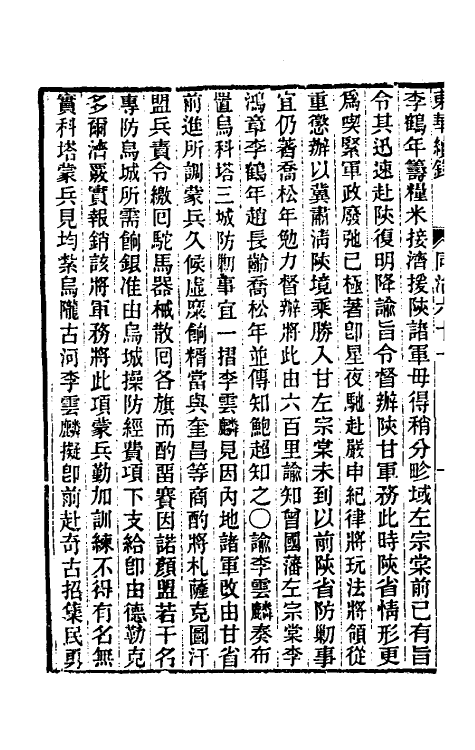 東華續錄　同治六十一
李鶴年籌糧米接濟援陝諸軍毋得稍分畛域左宗棠前已有旨
令其迅速赴陝復明降諭旨令督辦陝甘軍務此時陝省情形更
爲喫緊軍政廢弛已極著卽星夜馳赴嚴申紀律將玩法將領從
重懲辦以冀肅淸陝境乘勝入甘左宗棠未到以前陝省防勦事
宜仍著喬松年勉力督辦將此由六百里諭知曾國藩左宗棠李
鴻章李鶴年趙長齡喬松年並傳知鮑超知之〇諭李雲麟奏布
置烏科塔三城防勦事宜一摺李雲麟見因內地諸軍改由甘省
前進所調蒙兵久候虛糜餉糈當與奎昌等商酌將札薩克圖汗
盟兵責令繳囘駝馬器械散囘各旗而酌畱賽因諾顏盟若干名
專防烏城所需餉銀准由烏城操防經費項下支給卽由德勒克
多爾濟覈實報銷該將軍務將此項蒙兵勤加訓練不得有名無
實科塔蒙兵見均紮烏隴古河李雲麟擬卽前赴奇古招集民勇